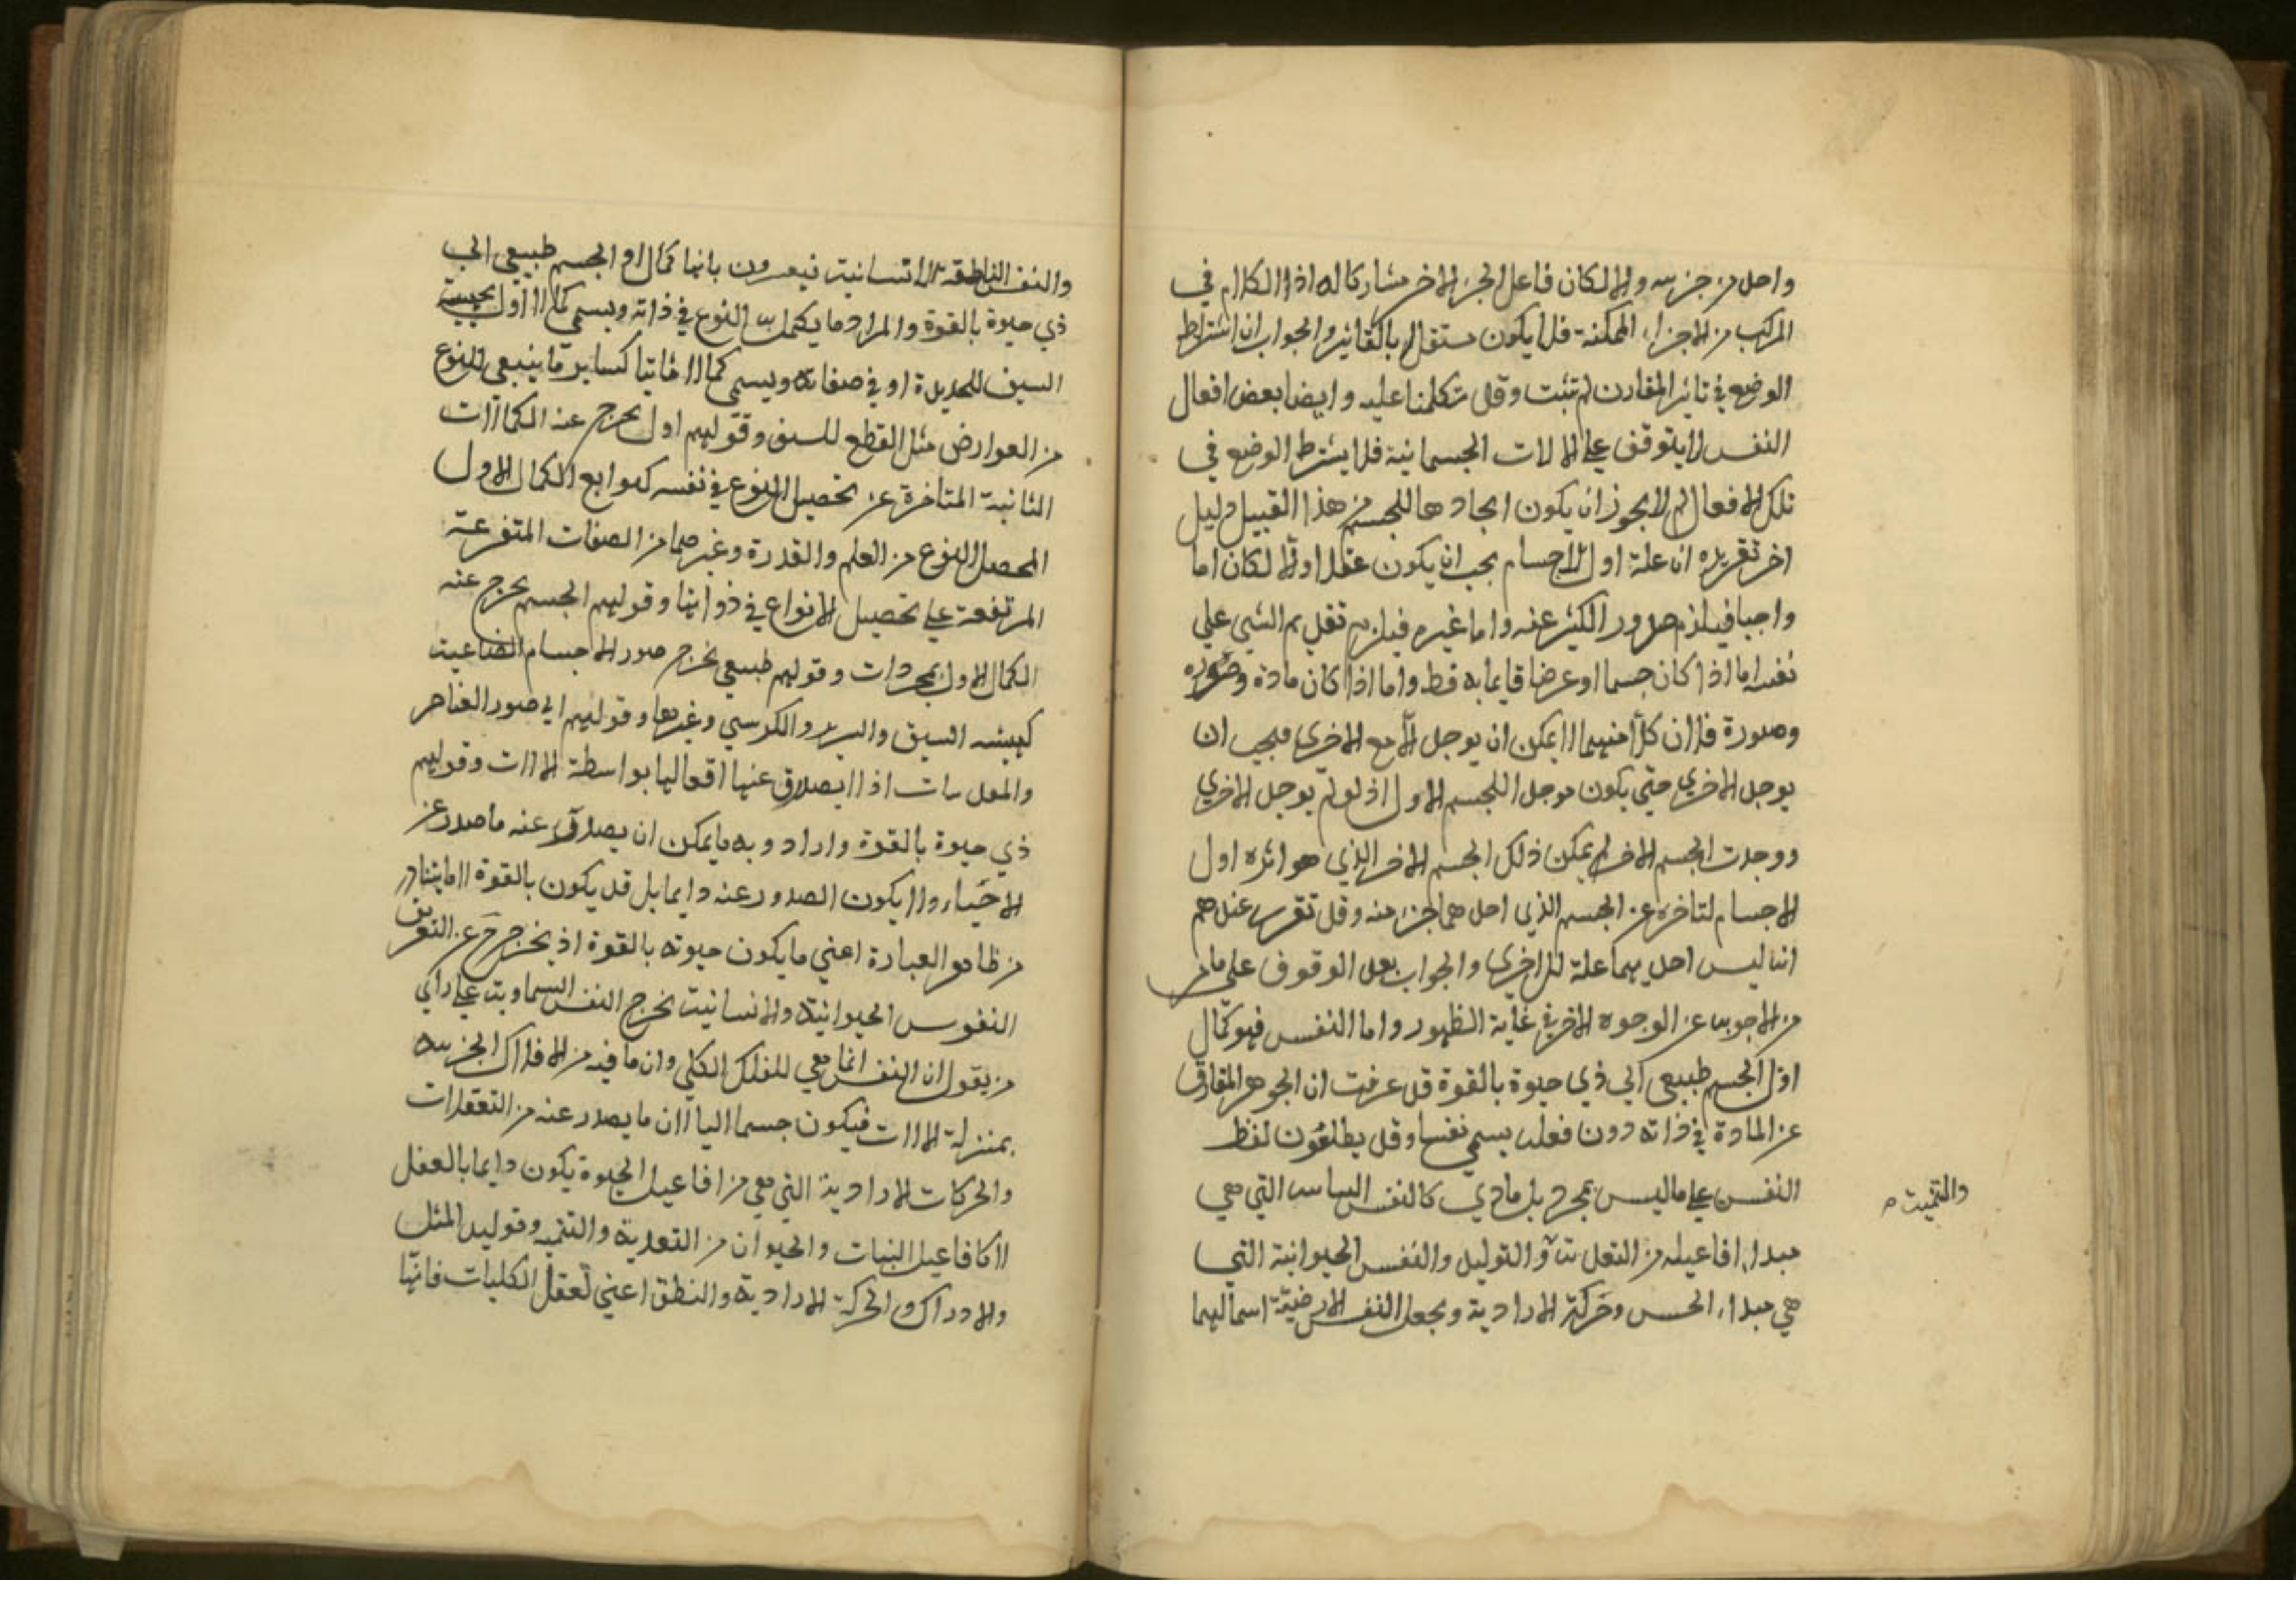 واحد من جزئيه والا لكان فاعل الجزء الاخر مشاركا له اذ الكلام في
المركب من الاجزاء الممكنة فلا يكون مستقلا بالتاثير والجواب ان اشتراط
الوضع في تاثير المقارن لم تثبت وقد تكلمنا عليه وايضا بعض افعال
النفس لا يتوقف علي الالات الجسمانية فلا يشترط الوضع في
تلك الافعال لم لا يجوز ان يكون ايجادها للجسم من هذا القبيل دليل
اخر تقريره ان علة اول الاجسام يجب ان يكون عقلا والا لكان اما
واجبا فيلزم صدور الكثير عنه واما غيره فيلزم تقديم الشي علي
نفسه اما اذا كان جسما او عرضا قايما به فظ واما اذا كان مادة وصوره
وصورة فلان كلا منهما لا يمكن ان يوجد الا مع الاخري فيجب ان
يوجد الاخري حتي يكون موجد اللجسم الاول اذ لو لم يوجد الاخري
ووجدت الجسم الاخر لم يمكن ذلك الجسم الاخر الذي هو اثره اول
الاجسام لتاخره عن الجسم الذي احدهما جزء منه وقد تقرر عندهم
انه ليس احديهما علة للاخري والجواب بعد الوقوف علي ما مر
من الاجوبه عن الوجوه الاخر في غاية الظهور واما النفس فهو كمال
اول لجسم طبيعي الي ذي حيوة بالقوة قد عرفت ان الجوهر المفارق
عن المادة في ذاته دون فعله يسمي نفسا وقد يطلقون لفظ
النفس علي ما ليس بمجرد بل مادي كالنفس النباتيه التي هي
مبداء افاعيله من التغذية والتوليد والنفس الحيوانية التي
والتنمية م
هي مبداء الحس وحركة الارادية ويجعل النفس الارضية اسما لهما
والنفس الناطقة الانسانية فيعرفون بانها كمال اول لجسم طبيعي الي
ذي حيوة بالقوة والمراد ما يكمل به النوع في ذاته ويسمي كمالا اول كهيئة
السيف للحديدة او في صفاته ويسمي كمالا ثانيا كساير ما ينبغي للنوع
من العوارض مثل القطع للسيف وقولهم اول يخرج عنه الكمالات
الثانية المتاخرة عن تحصيل النوع في نفسه كتوابع الكمال الاول
المحصل للنوع من العلم والقدرة وغيرهما من الصفات المتفرعة
المرتفعة علي تحصيل الانواع في ذواتها وقولهم الجسم يخرج عنه
الكمال الاول لمجردات وقولهم طبيعي يخرج صور الاجسام الصناعية
كهيئه السيف والسرير والكرسي وغيرها وقولهم الي صور العناصر
والمعدنيات اذ لا يصدر عنها افعالها بواسطة الالات وقولهم
ذي حيوة بالقوة وارادوا به ما يمكن ان يصدر عنه ما صدر عن
الاحياء ولا يكون الصدور عنه دايما بل قد يكون بالقوة لا ما يتبادر
من ظاهر العبارة اعني ما يكون حيوته بالقوة اذ يخرج ح عن التعريف
النفوس الحيوانية والانسانية يخرج النفس السماوية علي راي
من يقول ان النفس انما هي للفلك الكلي وان ما فيه من الافلاك الجزئيه
بمنزلة الالات فيكون جسما اليا لان ما يصدر عنه من التعقلات
والحركات الارادية التي هي من افاعيل الحيوة يكون دايما بالفعل
لا كافاعيل النبات والحيوان من التغدية والتنميه وتوليد المثل
والادراك والحركة الارادية والنطق اعني تعقل الكليات فانها